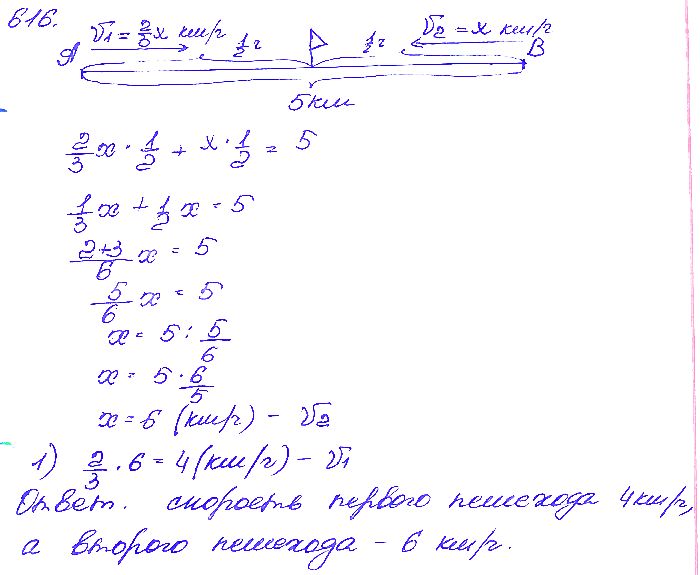 616.
V₁ = 2/3 x км/ч 1/2 ч 1/2 ч V₂ = x км/ч
A B
5 км
2/3 x · 1/2 + x · 1/2 = 5
1/3 x + 1/2 x = 5
2+3/6 x = 5
5/6 x = 5
x = 5 : 5/6
x = 5 · 6/5
x = 6 (км/ч) – V₂
1) 2/3 · 6 = 4 (км/ч) – V₁
Ответ. скорость первого пешехода 4 км/ч,
а второго пешехода – 6 км/ч.